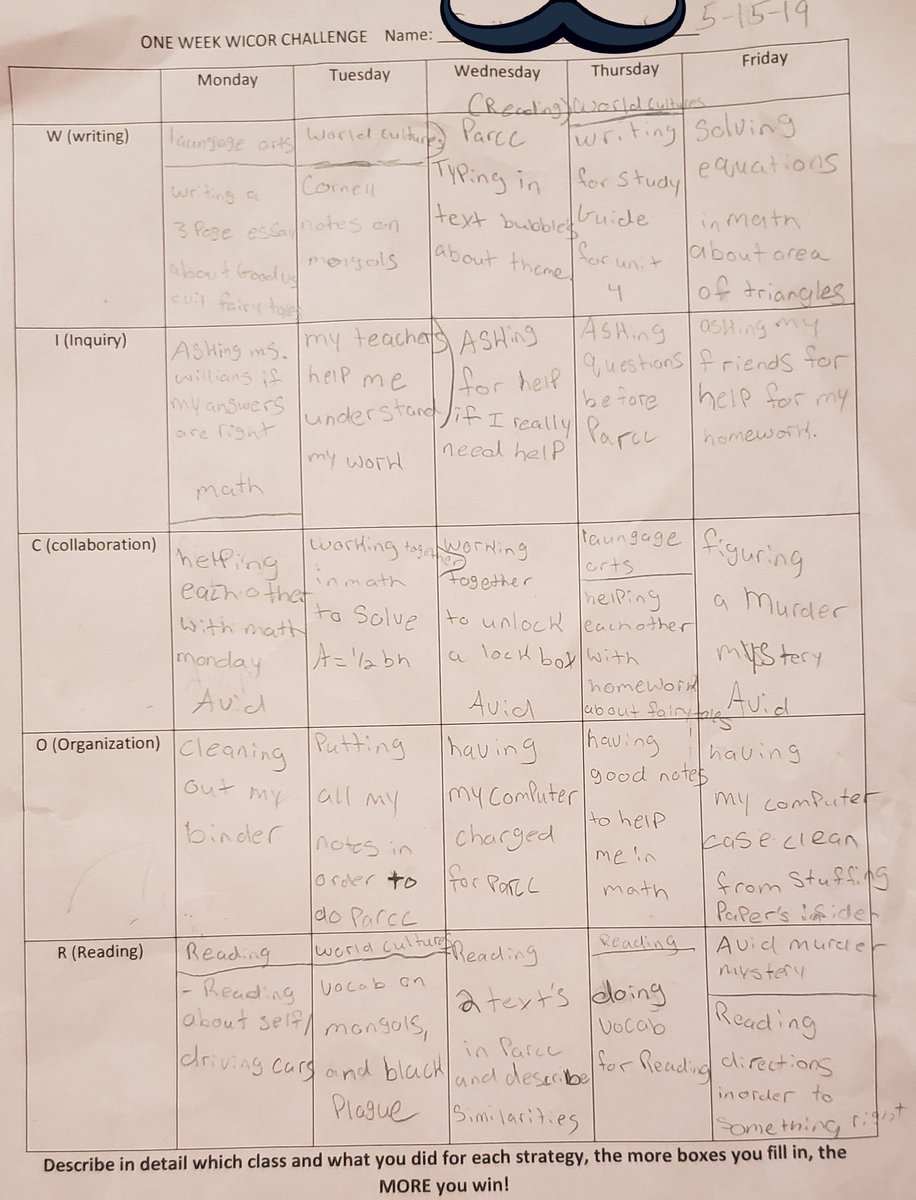 5-15-19
ONE WEEK WICOR CHALLENGE Name:
Monday Tuesday Wednesday Thursday Friday
W (writing)
laungage arts
writing a
3 Page essay
about Good vs
evil fairy tales
World cultures
Cornell
notes on
mongols
(Reading)
Parcc
Typing in
text bubbles
about theme
World cultures
writing
for study
Guide
for unit
4
Solving
equations
in math
about area
of triangles
I (Inquiry)
Asking ms.
Willians if
my answers
are right.
math
my teachers
help me
understand
my work
Asking
for help
if I really
need help
Asking
questions
before
Parcc
asking my
friends for
help for my
homework.
C (collaboration)
helping
eachother
with math
monday
Avid
working together
in math
to solve
A=1/2 bh
working
together
to unlock
a lock box
Avid
laungage
arts
helping
eachother
with
homework
about fairy tales
figuring
a Murder
mystery
Avid
O (Organization)
Cleaning
out my
binder
Putting
all my
notes in
order to
do Parcc
having
my computer
charged
for Parcc
having
good notes
to help
me in
math
having
my computer
case clean
from stuffing
Paper's inside
R (Reading)
Reading
- Reading
about self/
driving cars
World Cultures
Vocab on
mongols,
and black
Plague
Reading
2 text's
in Parcc
and describe
Similarities
Reading
doing
Vocab
for Reading
Avid murder
mystery
Reading
directions
inorder to
something right
Describe in detail which class and what you did for each strategy, the more boxes you fill in, the
MORE you win!